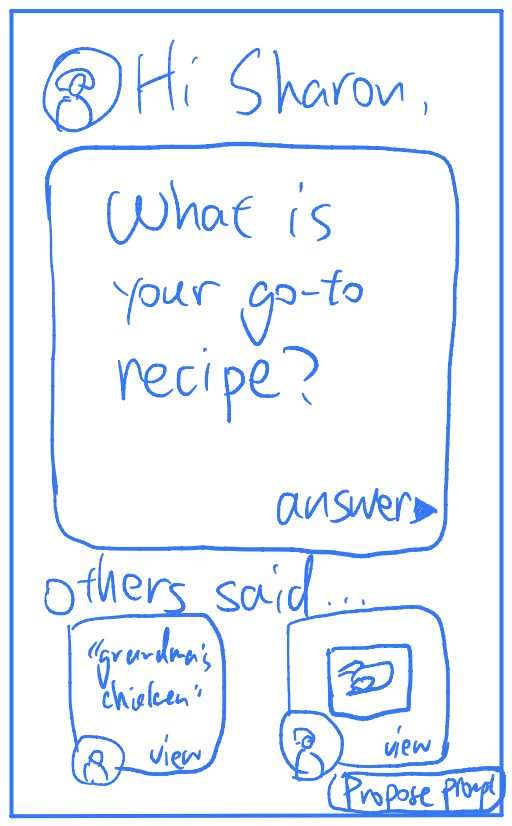 Hi Sharon,
What is
your go-to
recipe?
answer
others said...
"grandma's
chicken"
view
view
Propose prompt